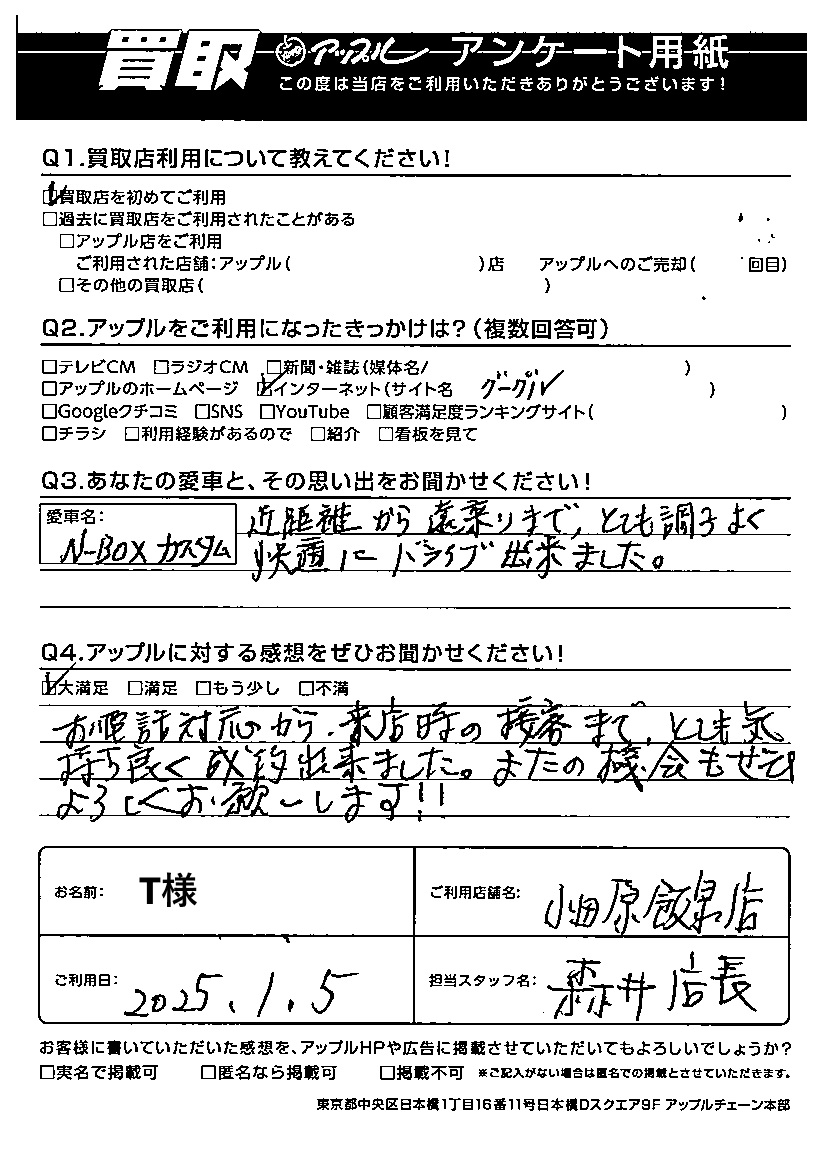 買取 アップル アンケート用紙
この度は当店をご利用いただきありがとうございます!
Q1.買取店利用について教えてください!
☑買取店を初めてご利用
□過去に買取店をご利用されたことがある
□アップル店をご利用
ご利用された店舗:アップル( )店 アップルへのご売却( 回目)
□その他の買取店( )
Q2.アップルをご利用になったきっかけは?(複数回答可)
□テレビCM □ラジオCM □新聞・雑誌(媒体名/ )
□アップルのホームページ ☑インターネット(サイト名 グーグル )
□Googleクチコミ □SNS □YouTube □顧客満足度ランキングサイト( )
□チラシ □利用経験があるので □紹介 □看板を見て
Q3.あなたの愛車と、その思い出をお聞かせください!
愛車名:
N-BOX カスタム
近距離から遠乗りまで、とても調子よく
快適にドライブ出来ました。
Q4.アップルに対する感想をぜひお聞かせください!
☑大満足 □満足 □もう少し □不満
お電話対応から、来店時の接客まで、とても気
持ち良く成約出来ました。またの機会もぜひ
よろしくお願いします!!
お名前: T様
ご利用店舗名: 小田原飯泉店
ご利用日: 2025.1.5
担当スタッフ名: 森井店長
お客様に書いていただいた感想を、アップルHPや広告に掲載させていただいてもよろしいでしょうか?
□実名で掲載可 □匿名なら掲載可 □掲載不可 ※ご記入がない場合は匿名での掲載とさせていただきます。
東京都中央区日本橋1丁目16番11号日本橋Dスクエア9F アップルチェーン本部